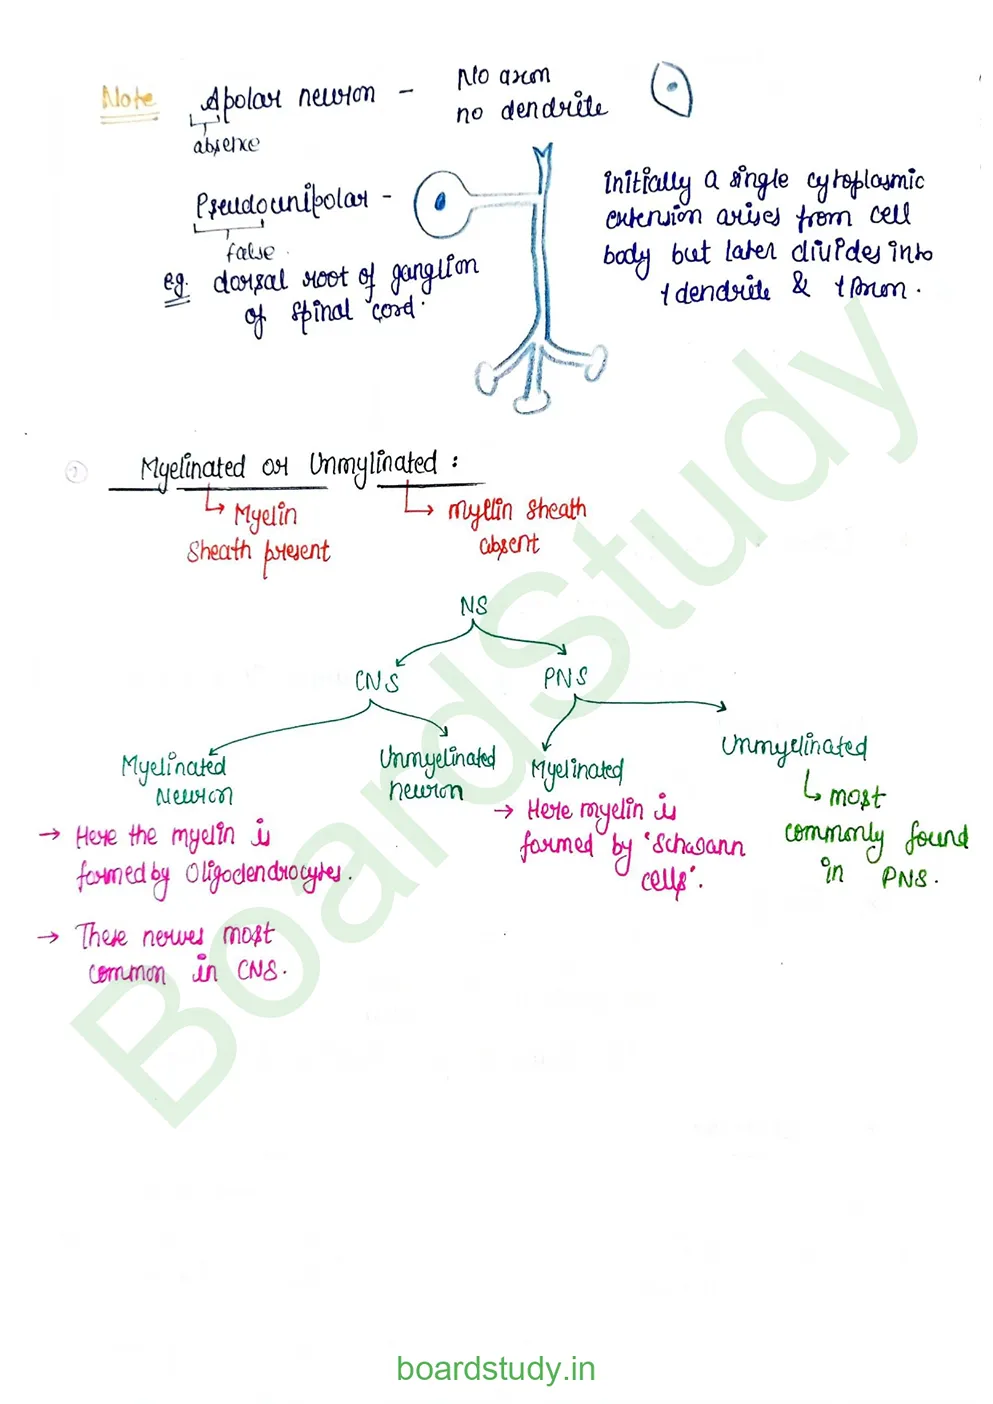 Note Apolar neuron - No axon
no dendrite
absence
Pseudounipolar -
false.
eg. dorsal root of ganglion
of spinal cord.
Initially a single cytoplasmic
extension arises from cell
body but later divides into
1 dendrite & 1 Axon.
Myelinated or Unmylinated :
Myelin
Sheath present
myelin sheath
absent
NS
CNS
PNS
Myelinated
Neuron
Unmyelinated
neuron
Myelinated
Unmyelinated
→ Here the myelin is
formed by Oligodendrocytes.
→ These nerves most
common in CNS.
→ Here myelin is
formed by 'Schwann
cells'.
most
commonly found
in PNS.
BoardStudy
boardstudy.in